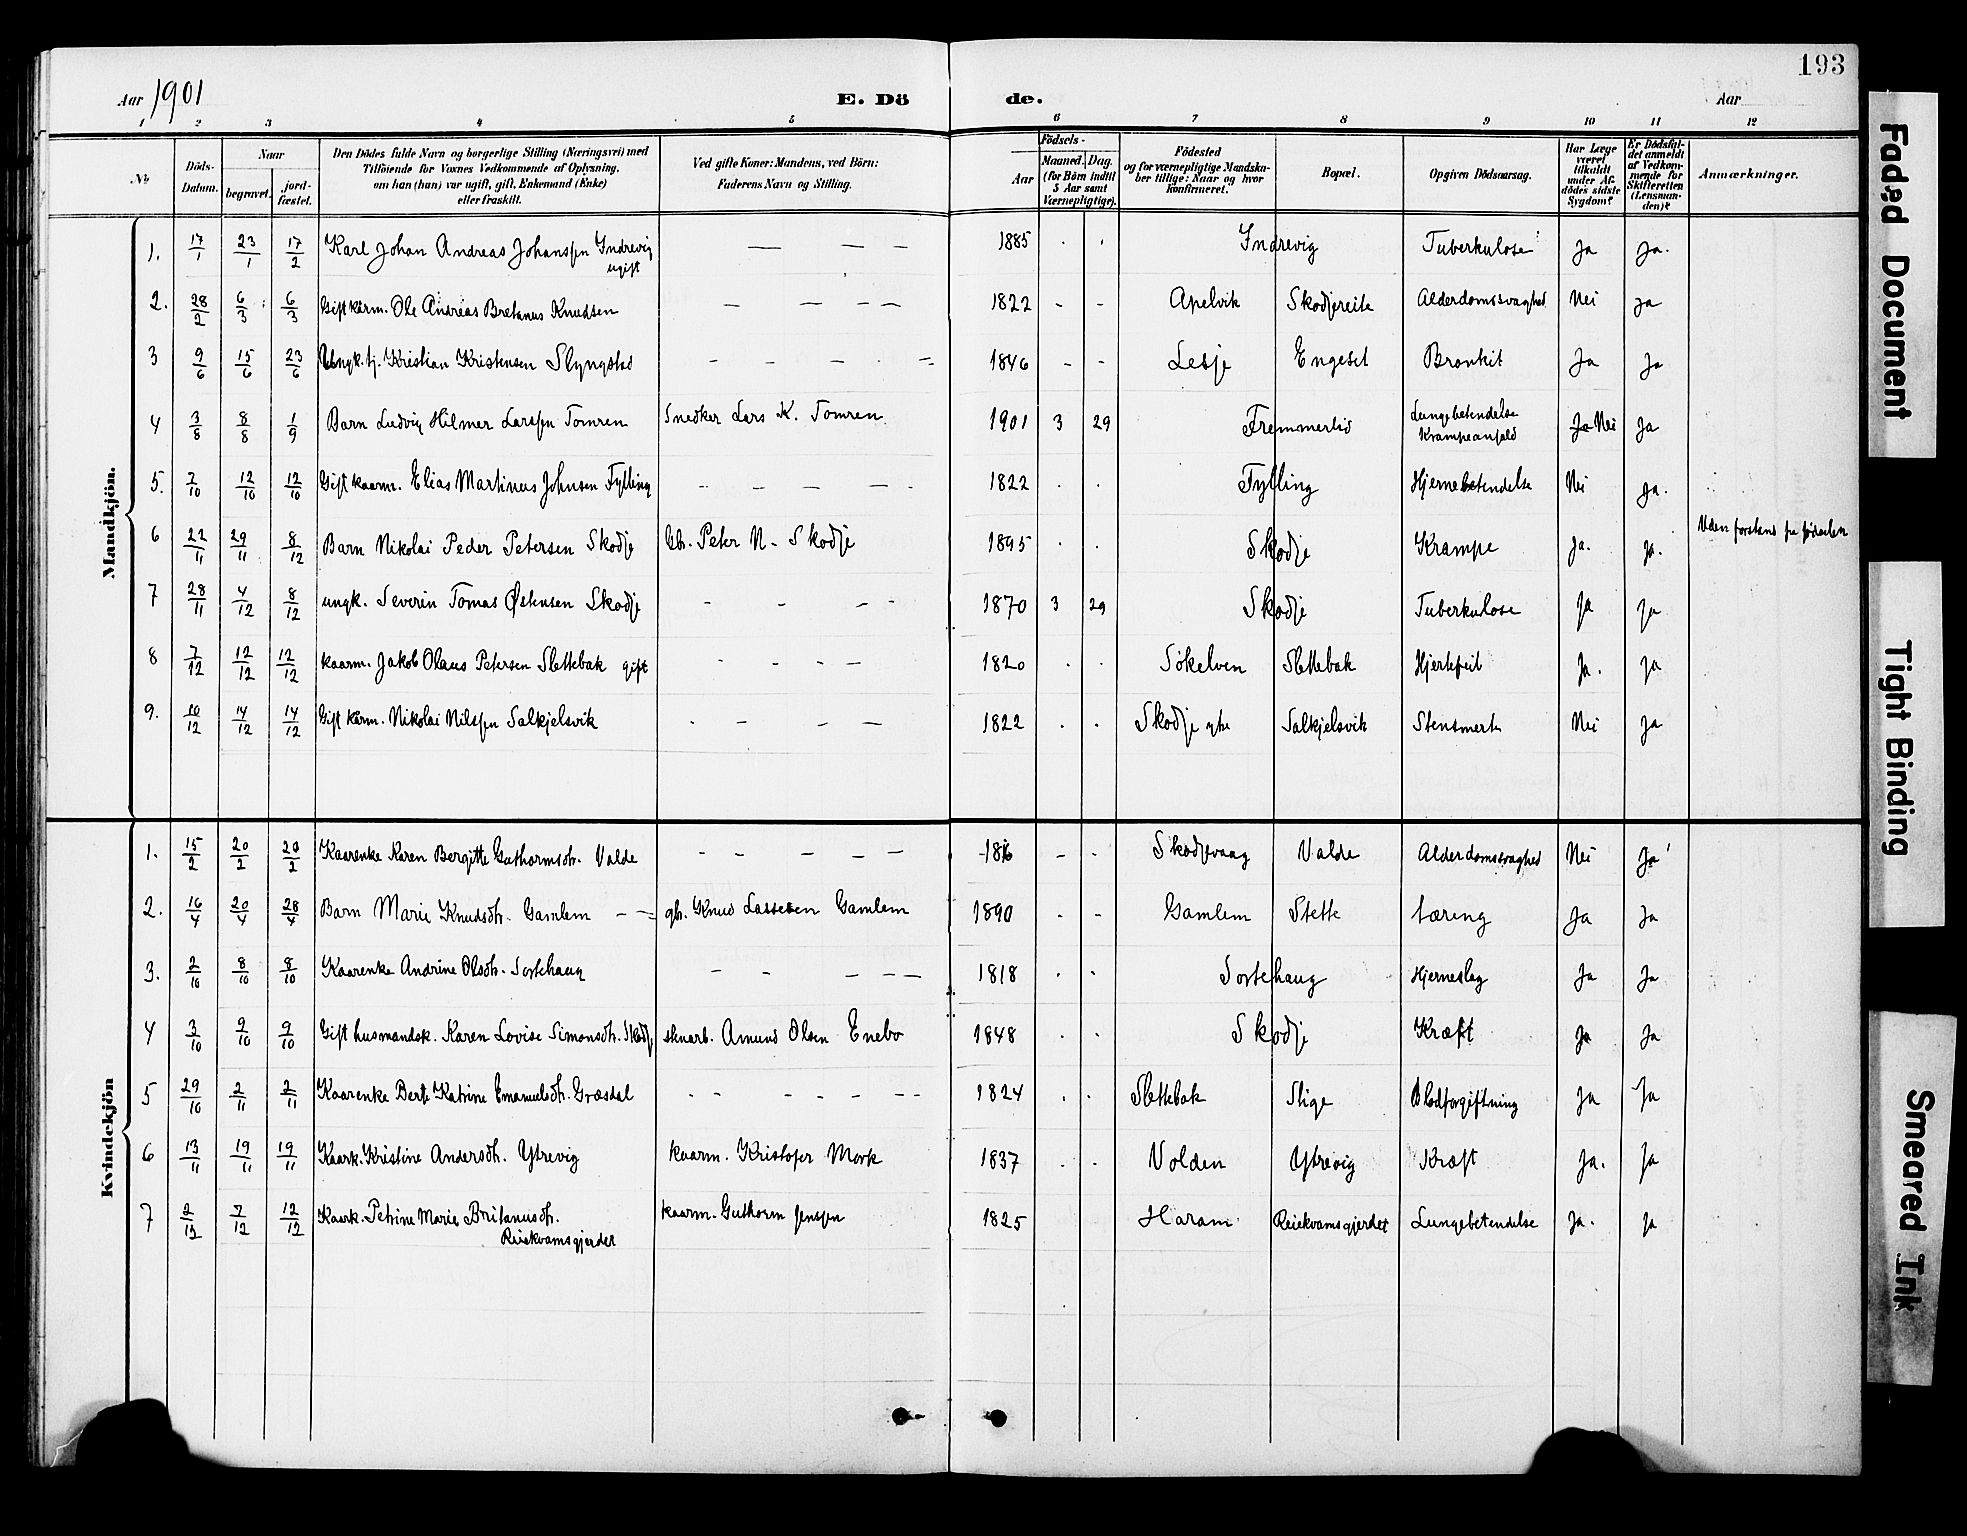 193
Aar 1901
E. Dö de.
Aar
1 2 3 4 5 6 7 8 9 10 11 12
No
Döds-Datum.
Naar
begravet.
jord-fæstet.
Den Dödes fulde Navn og borgerlige Stilling (Næringsvei) med
Tilföiende for Voxnes Vedkommende af Oplysning,
om han (hun) var ugift, gift, Enkemand (Enke)
eller fraskilt.
Ved gifte Koner: Mandens, ved Börn:
Faderens Navn og Stilling.
Födsels-
Aar
Maaned. Dag.
(for Börn indtil
5 Aar samt
Værnepligtige).
Födested
og for værnepligtige Mandska-
ber tillige: Naar og hvor
konfirmeret.
Bopæl.
Opgiven Dödsaarsag.
Har Læge
været
tilkaldt
under Af-
dödes sidste
Sygdom?
Er Dödsfal-
det anmeldt
af Vedkom-
mende for
Skifteretten
(Lensman-
den)?
Anmærkninger.
Mandkjön.
1. 17/1 23/1 17/2 Karl Johan Andreas Johanssen Indrevig — — — 1885 Indrevig Tuberkulose Ja Ja.
ugift
2. 28/2 6/3 6/3 Gift kårm. Ole Andreas Bretanus Knudsen — — — — 1822 - - Apelvik Skodjereite Alderdomssvaghed Nei Ja
3 9/6 15/6 23/6 Ungk. tj. Kristian Kristensen Slyngstad - - - - 1846 - - Lesje Engeset Bronkit Ja Ja
4 3/8 8/8 1/9 Barn Ludvig Hilmer Larssen Tomren Snedker Lars K. Tomren 1901 3 29 Fremmerlid Lungebetendelse Ja Nei Ja
Krampeanfald
5. 7/10 12/10 12/10 Gift kaarm. Elias Martinus Johnsen Fylling - - - - - 1822 Fylling Hjernebetendelse Nei Ja.
6 22/11 29/11 8/12 Barn Nikolai Peder Petersen Skodje Gb. Peter N. Skodje 1895 Skodje Krampe Ja. Ja. Uden forstand fra fødselen
7 28/11 4/12 8/12 ungk. Severin Tomas Østensen Skodje - - - - 1870 3 29 Skodje Tuberkulose Ja Ja
8 7/12 12/12 12/12 kaarm. Jakob Olaus Petersen Slettebak gift - - - - 1820 Søkelven Slettebak Hjertefeil Ja. Ja
9. 10/12 14/12 14/12 Gift kårm. Nikolai Nilssen Salkjelsvik - - - - 1822 Skodje Salkjelsvik Stensmert Nei Ja
Kvindekjön
1. 15/2 20/2 20/2 Kaarenke Karen Bergitte Guthormsdtr. Valde - - - - - 1816 - - Skodjevaag Valde Alderdomssvaghed Nei Ja
2. 16/4 20/4 28/4 Barn Marie Knudsdtr. Gamlem gb. Knud Lassesen Gamlem 1890 - - Gamlem Stette tæring Ja Ja
3. 2/10 8/10 8/10 Kaarenke Andrine Olsdtr. Sortehaug - - - - - 1818 Sortehaug Hjerneslag Ja Ja
4 3/10 9/10 9/10 Gift husmandsk. Karen Lovise Simonsdtr. Skodje Amund Olsen Enebo 1848 Skodje Kræft Ja Ja
5 29/10 2/11 2/11 Kaarenke Berte Katrine Emanuelsdtr. Græsdal - - - - - - 1824 Slettebak Stige Blodforgiftning Ja Ja
6 13/11 19/11 19/11 Kaark. Kristine Andersdtr. Ytrevig kaarm. Kristofer Mork 1837 Volden Ytrevig Kræft Ja. Ja
7 2/12 7/12 12/12 Kaark. Petrine Marie Britanusdtr. kaarm. Guthorm Jenssen 1825 Haram Reiekvamsgjerdet Lungebetendelse Ja. Ja
Reiekvamsgjerdet
Faded Document
Tight Binding
Smeared Ink